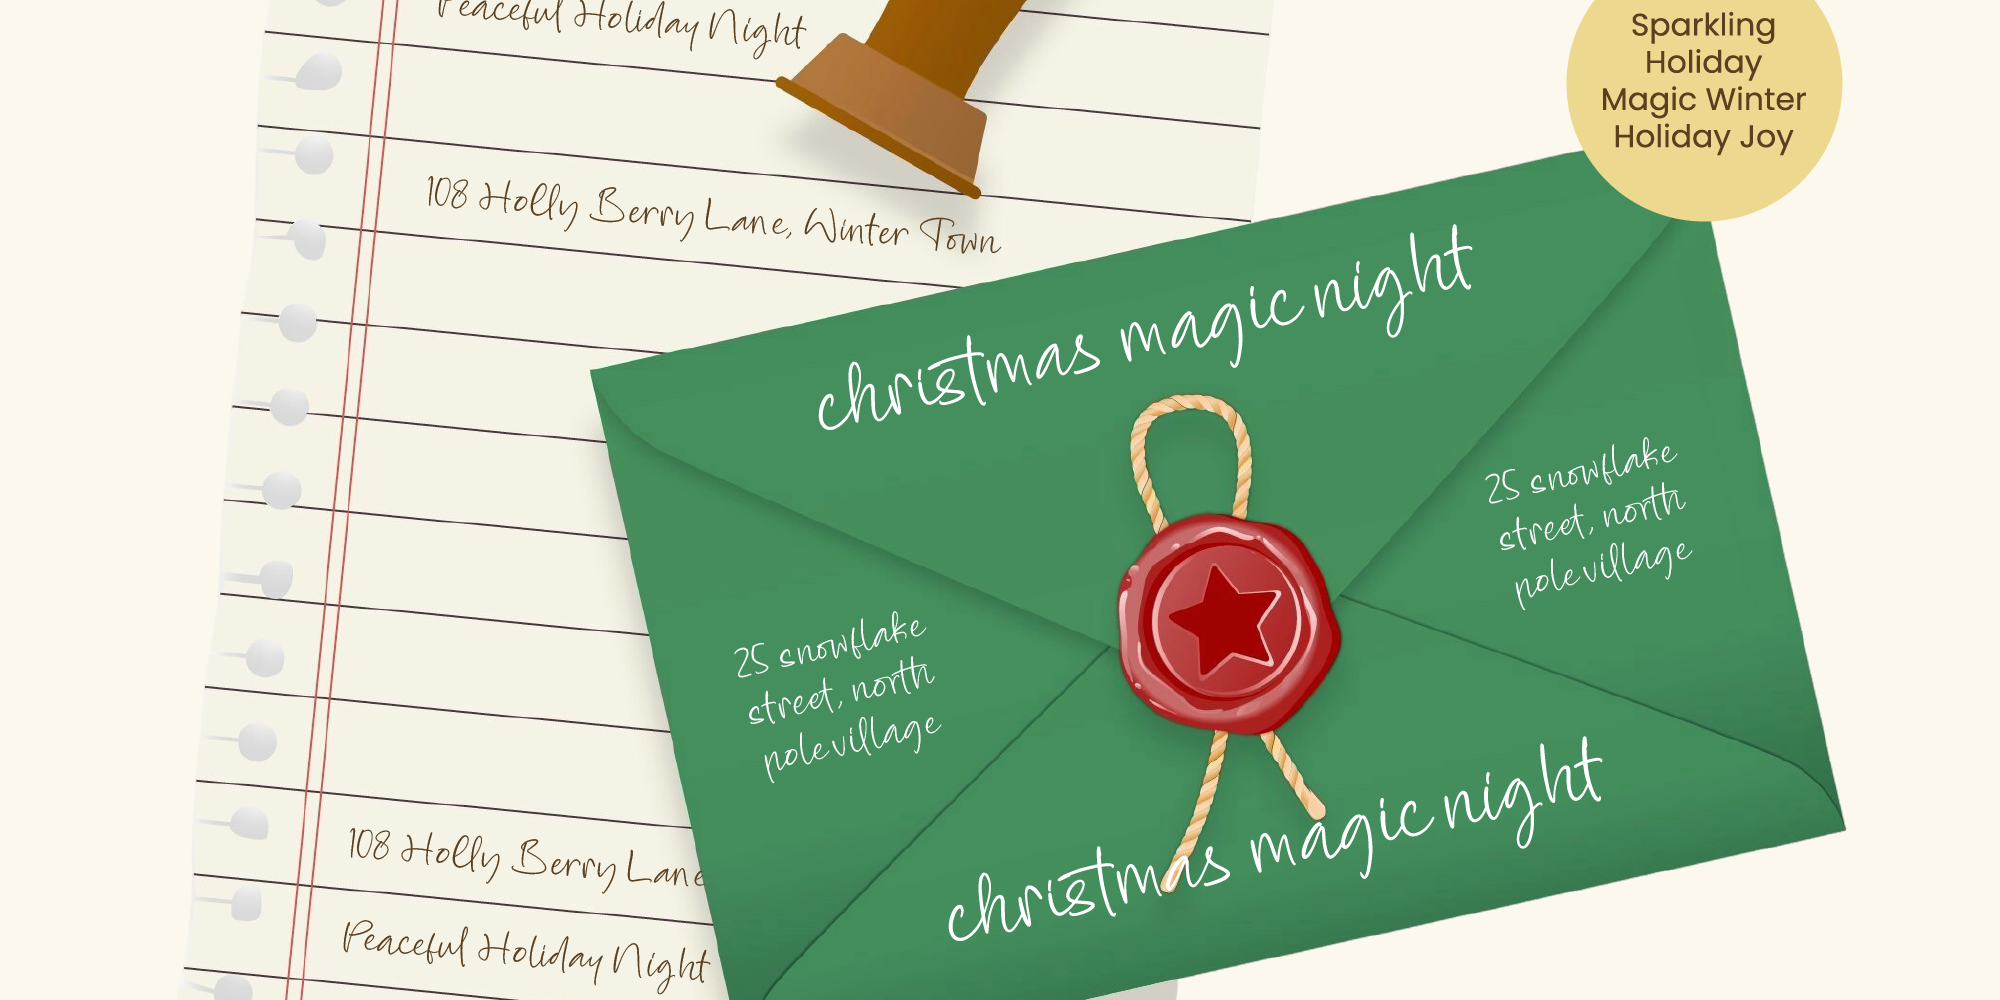 Peaceful Holiday Night
Sparkling
Holiday
Magic Winter
Holiday Joy
108 Holly Berry Lane, Winter Town
christmas magic night
25 snowflake
street, north
pole village
25 snowflake
street, north
pole village
christmas magic night
108 Holly Berry Lane
Peaceful Holiday Night